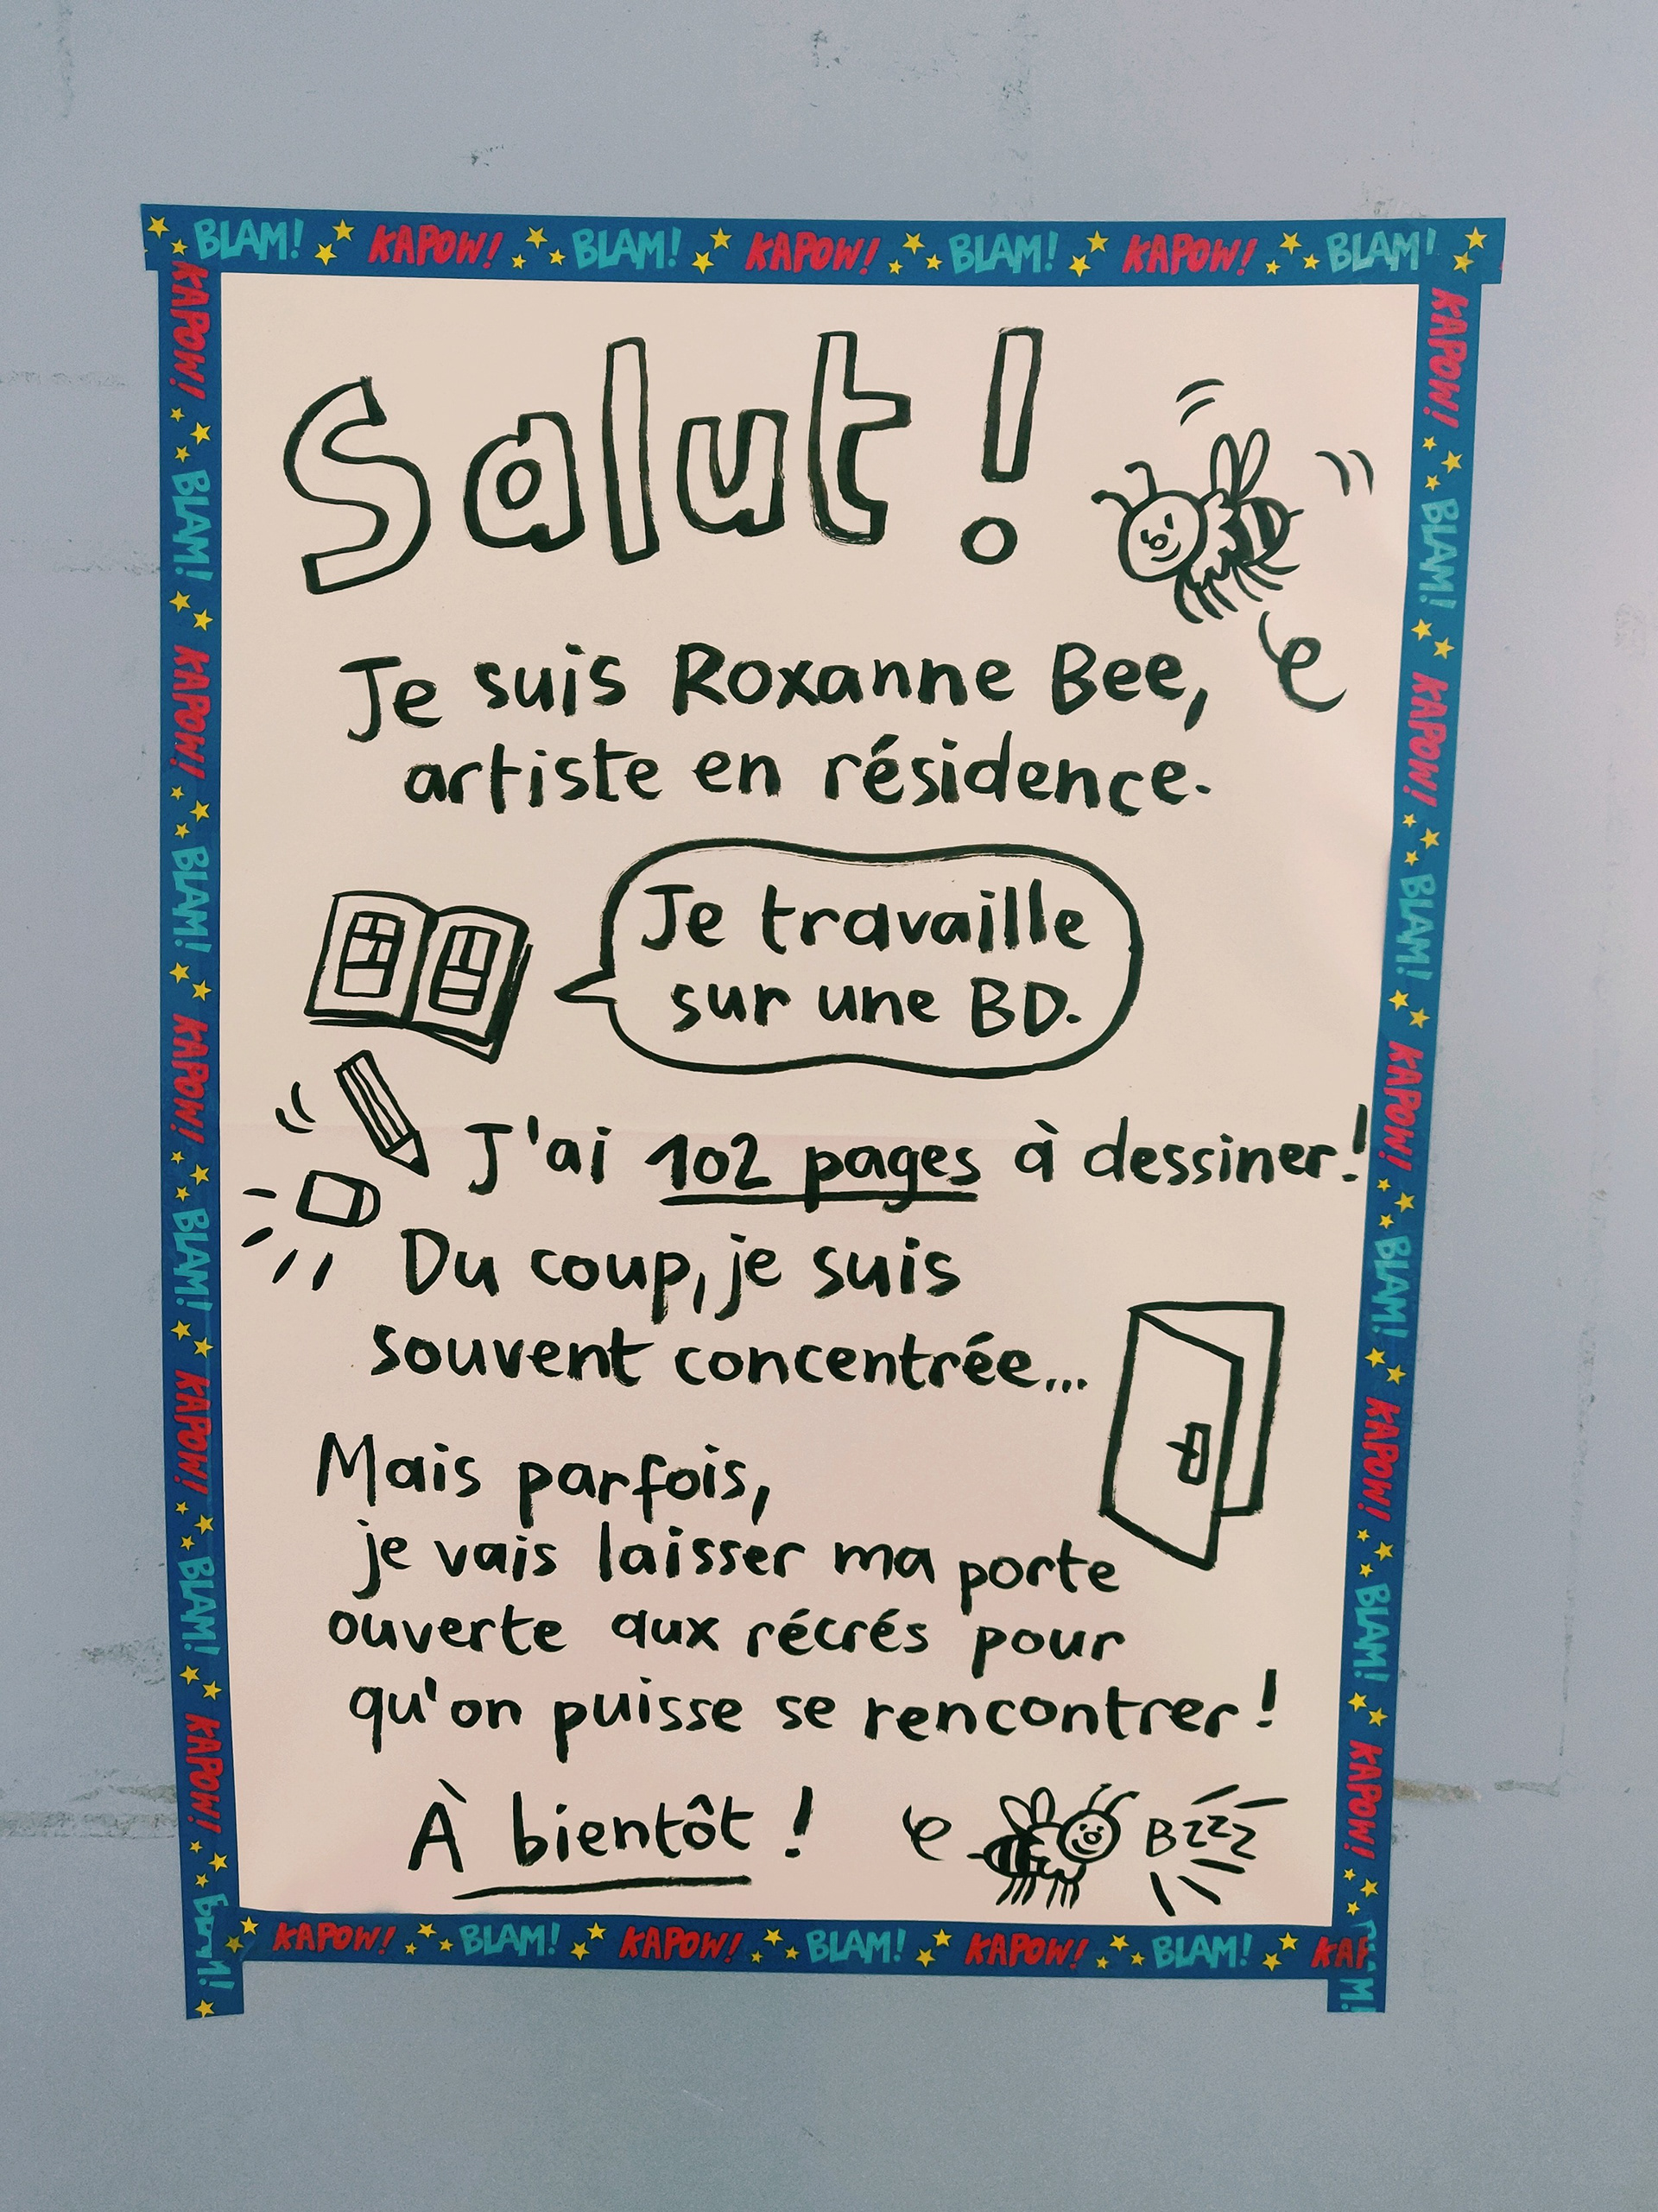 BLAM! KAPOW! BLAM! KAPOW! BLAM! KAPOW! BLAM!
KAPOW! BLAM! KAPOW! BLAM! KAPOW! BLAM! KAPOW! BLAM! KAPOW! BLAM!
Salut !
Je suis Roxanne Bee,
artiste en résidence.
Je travaille
sur une BD.
J'ai 102 pages à dessiner!
Du coup, je suis
souvent concentrée...
Mais parfois,
je vais laisser ma porte
ouverte aux récrés pour
qu'on puisse se rencontrer !
À bientôt !
Bzzzz
KAPOW! BLAM! KAPOW! BLAM! KAPOW! BLAM! KAPOW! BLAM! KAPOW!
KAPOW! BLAM! KAPOW! BLAM! KAPOW! BLAM! KAP